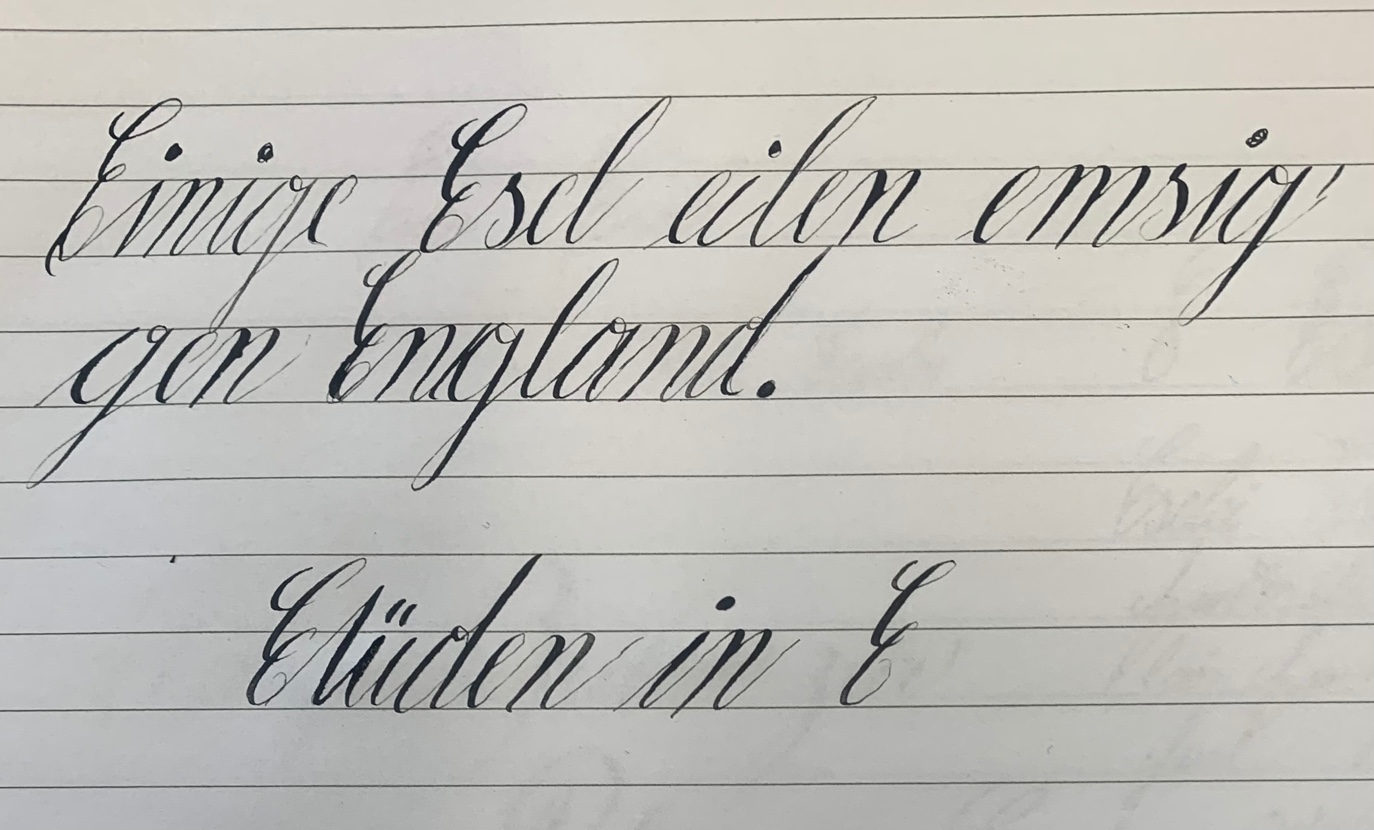 Einige Esel eilen emsig
gen England.
Etüden in E